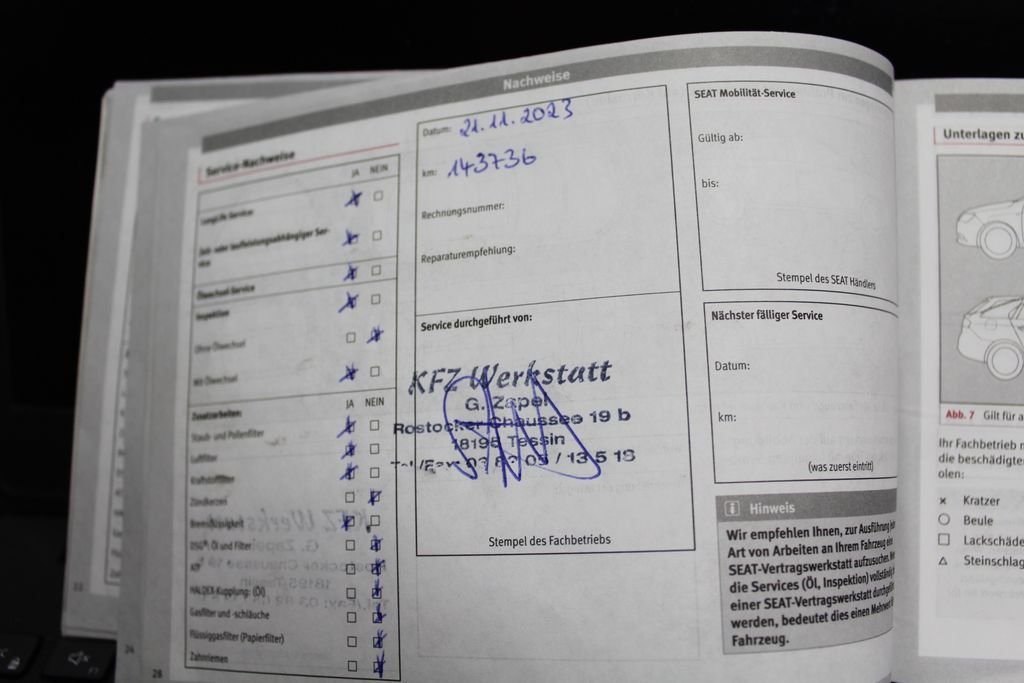 Nachweise
Service-Nachweise
JA NEIN
LongLife-Service
Zeit- oder laufleistungsabhängiger Ser-
vice
Ölwechsel-Service
Inspektion
Ohne Ölwechsel
Mit Ölwechsel
Zusatzarbeiten: JA NEIN
Staub- und Pollenfilter
Luftfilter
Kraftstofffilter
Zündkerzen
Bremsflüssigkeit
DSG®: Öl und Filter
HALDEX-Kupplung: (Öl)
Gasfilter und -schläuche
Flüssiggasfilter (Papierfilter)
Zahnriemen
28
Datum: 21.11.2023
km: 143736
Rechnungsnummer:
Reparaturempfehlung:
Service durchgeführt von:
KFZ Werkstatt
G. Zapel
Rostocker Chaussee 19 b
18195 Tessin
Stempel des Fachbetriebs
SEAT Mobilität-Service
Gültig ab:
bis:
Stempel des SEAT Händlers
Nächster fälliger Service
Datum:
km:
(was zuerst eintritt)
Hinweis
Wir empfehlen Ihnen, zur Ausführung
Art von Arbeiten an Ihrem Fahrzeug
SEAT-Vertragswerkstatt aufzusuchen.
die Services (Öl, Inspektion) vollständig
einer SEAT-Vertragswerkstatt
werden, bedeutet dies einen Mehrwert
Fahrzeug.
Unterlagen
Abb. 7 Gilt für
Ihr Fachbetrieb
die beschädigten
olen:
× Kratzer
Beule
Lackschäde
Steinschlag